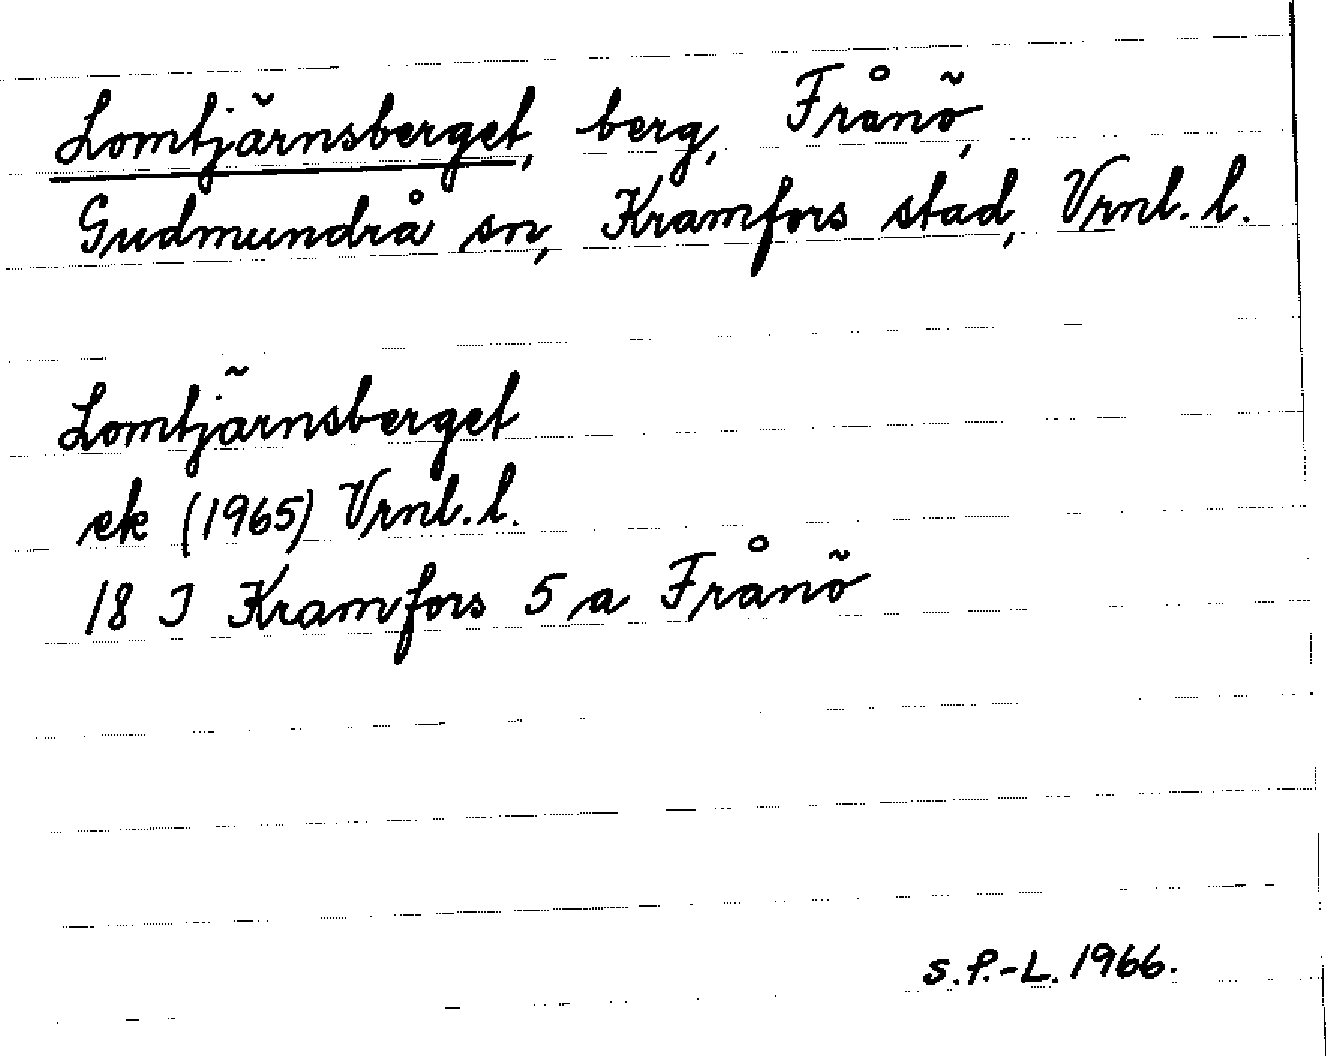 Lomtjärnsberget, berg, Frånö,
Gudmundrå sn, Kramfors stad, Vrnl. l.
Lomtjärnsberget
ek (1965) Vrnl. l.
18 I Kramfors 5 a Frånö
S.P.-L. 1966.